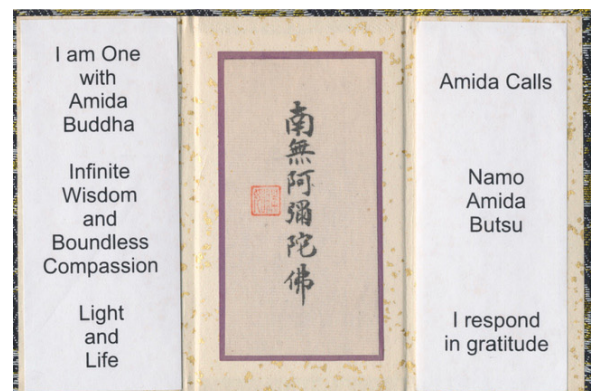 I am One
with
Amida
Buddha
Infinite
Wisdom
and
Boundless
Compassion
Light
and
Life
南無阿彌陀佛
Amida Calls
Namo
Amida
Butsu
I respond
in gratitude